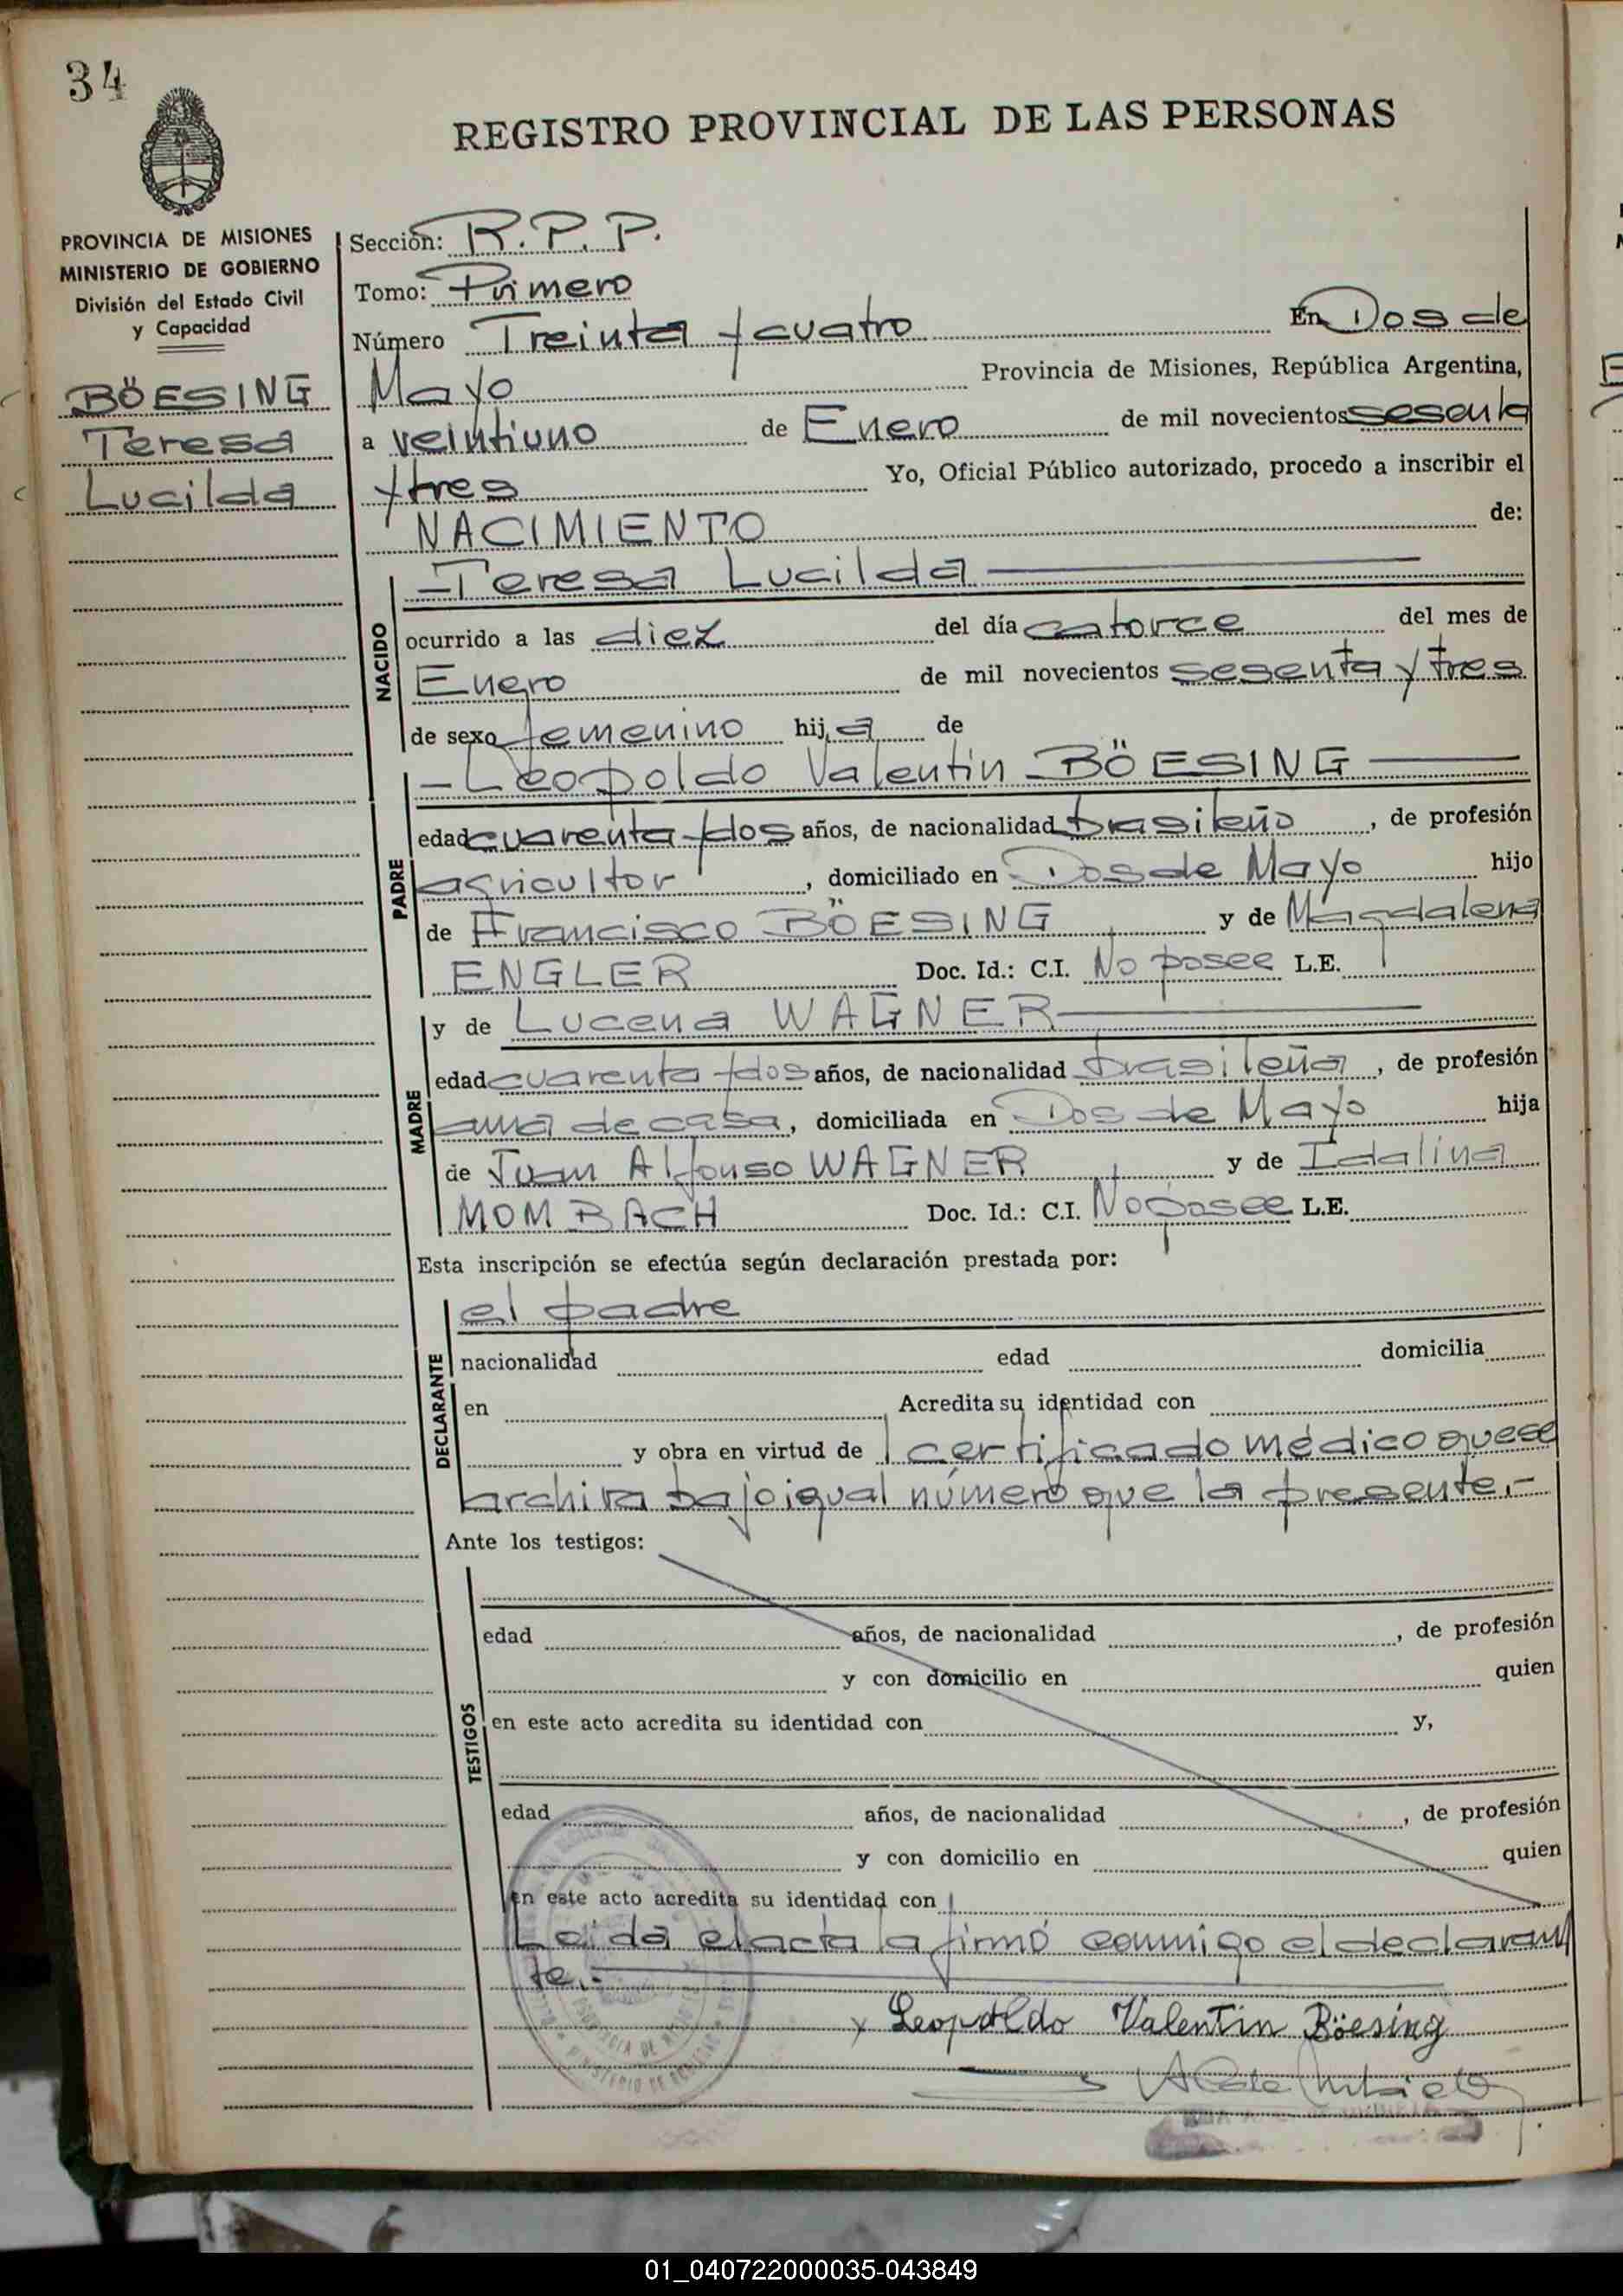 34
REGISTRO PROVINCIAL DE LAS PERSONAS
PROVINCIA DE MISIONES
MINISTERIO DE GOBIERNO
División del Estado Civil
y Capacidad
BÖESING
Teresa
Lucilda
Sección: R.P.P.
Tomo: Primero
Número Treinta y cuatro En Dos de
Mayo Provincia de Misiones, República Argentina,
a veintiuno de Enero de mil novecientos sesenta
y tres Yo, Oficial Público autorizado, procedo a inscribir el
NACIMIENTO de:
NACIDO
- Teresa Lucilda
ocurrido a las diez del día catorce del mes de
Enero de mil novecientos sesenta y tres
de sexo femenino hija de
PADRE
- Leopoldo Valentin BÖESING
edad cuarenta y dos años, de nacionalidad brasileño, de profesión
agricultor, domiciliado en Dos de Mayo hijo
de Francisco BÖESING y de Magdalena
ENGLER Doc. Id.: C.I. No posee L.E.
MADRE
y de Lucena WAGNER
edad cuarenta y dos años, de nacionalidad brasileña, de profesión
ama de casa, domiciliada en Dos de Mayo hija
de Juan Alfonso WAGNER y de Idalina
MOMBACH Doc. Id.: C.I. No posee L.E.
Esta inscripción se efectúa según declaración prestada por:
DECLARANTE
el padre
nacionalidad edad domicilia
en Acredita su identidad con
y obra en virtud de certificado médico que se
archiva bajo igual número que la presente.-
Ante los testigos:
TESTIGOS
edad años, de nacionalidad, de profesión
y con domicilio en quien
en este acto acredita su identidad con y,
edad años, de nacionalidad, de profesión
y con domicilio en quien
en este acto acredita su identidad con
Leída el acta la firmó conmigo el declaran
te.-
x Leopoldo Valentin Böesing
MINISTERIO DE GOBIERNO
01_040722000035-043849